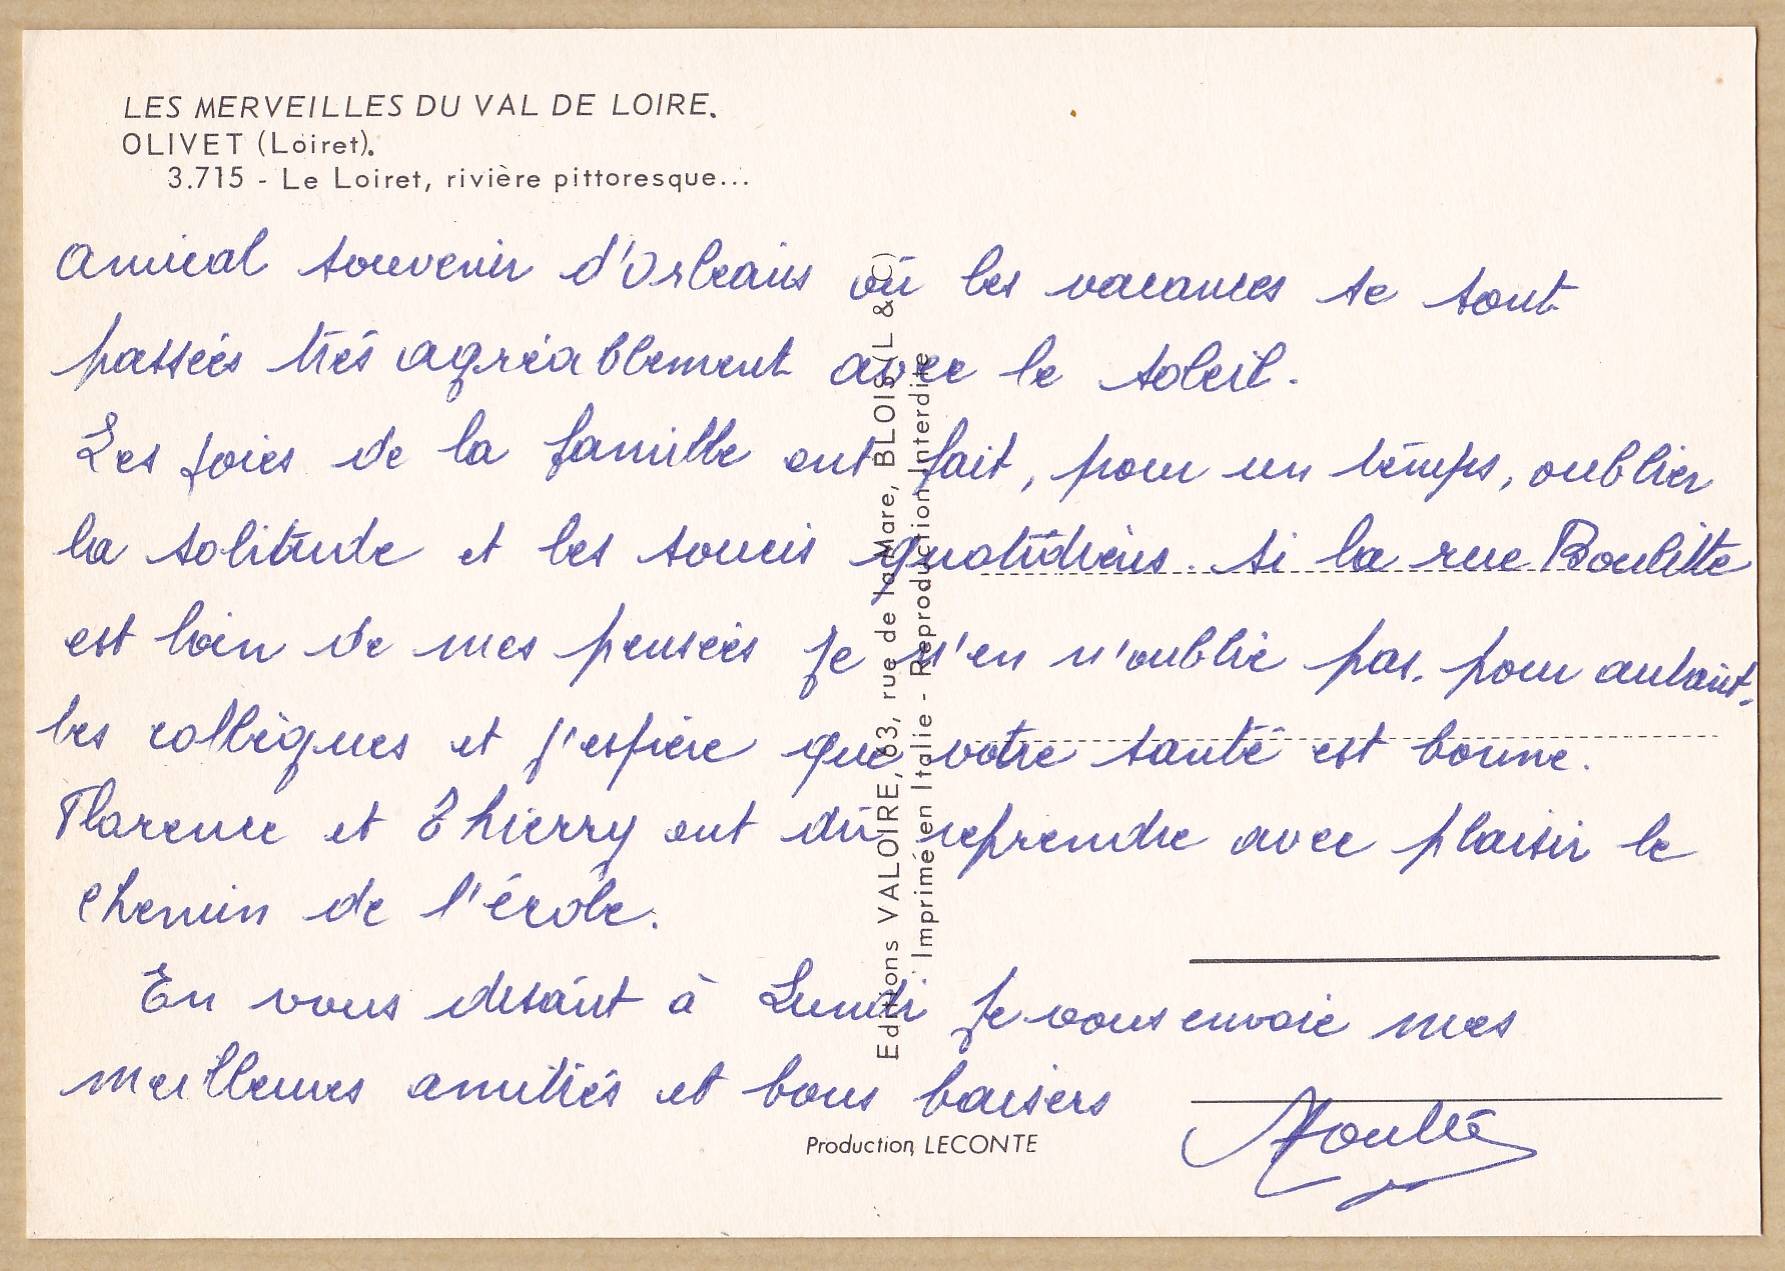 LES MERVEILLES DU VAL DE LOIRE.
OLIVET (Loiret).
3.715 - Le Loiret, rivière pittoresque...
Amical souvenir d'Orléans où les vacances se sont
passées très agréablement avec le soleil.
Les joies de la famille ont fait, pour un temps, oublier
la solitude et les soucis quotidiens. Si la rue Boulitte
est loin de mes pensées je n'en n'oublie pas, pour autant,
les collègues et j'espère que votre santé est bonne.
Florence et Thierry ont dû reprendre avec plaisir le
chemin de l'école.
En vous disant à Lundi je vous envoie mes
meilleures amitiés et bons baisers
Editions VALOIRE, 63, rue de la Mare, BLOIS (L & C)
Imprimé en Italie - Reproduction Interdite
Production LECONTE